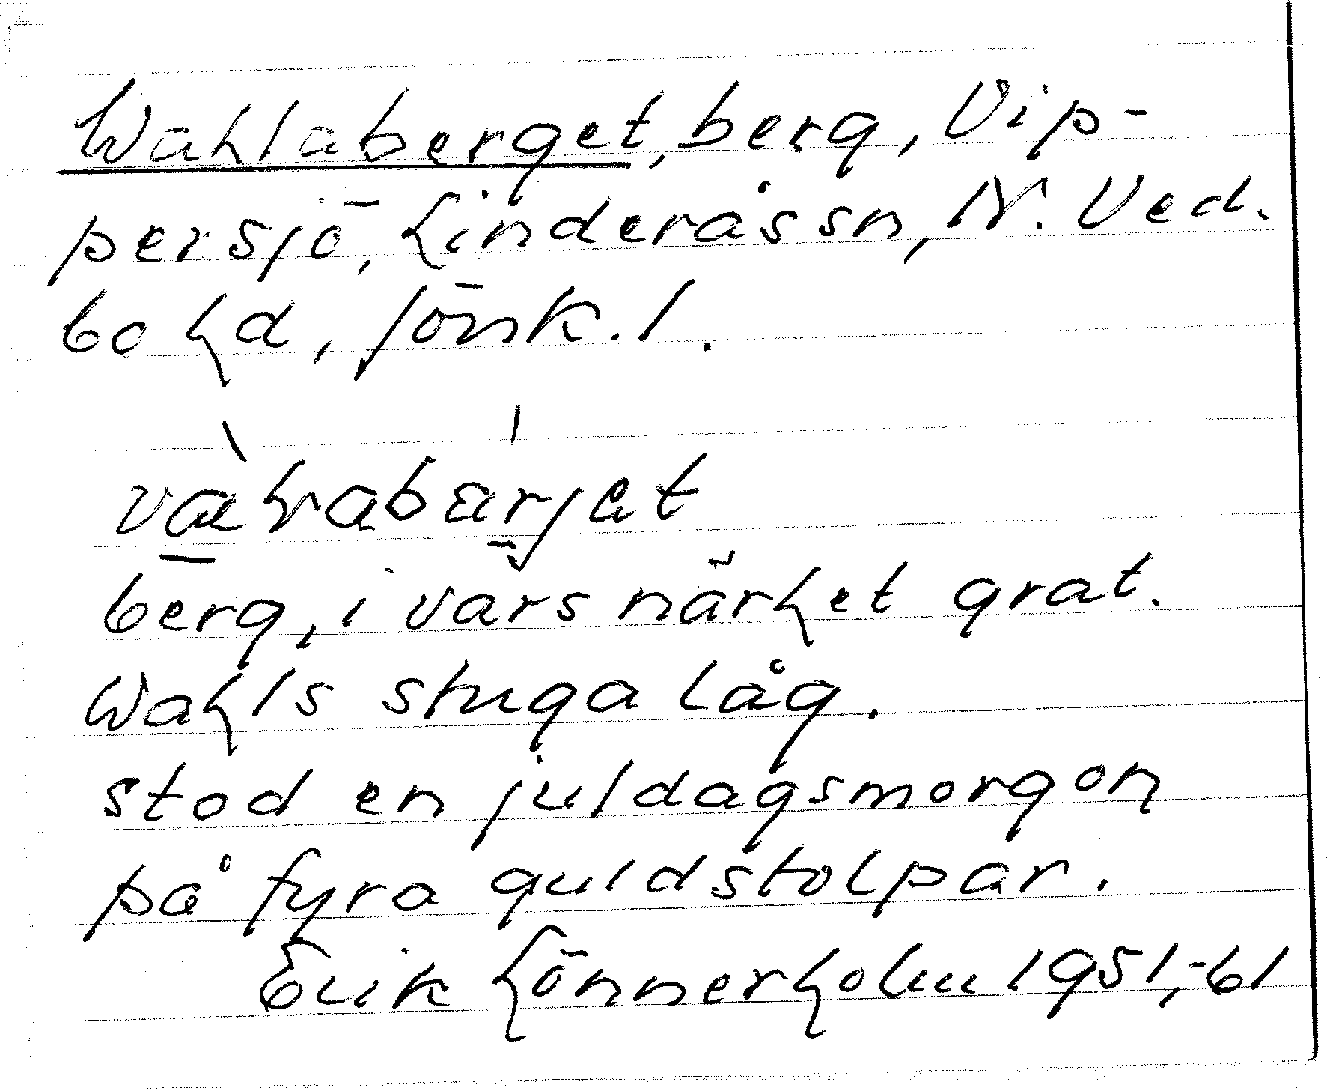 Wahlaberget, berg, Vip-
persjö, Linderås sn, N. Ved-
bo hd, Jönk. l.
berg, i vars närhet grat.
Wahls stuga låg.
stod en juldagsmorgon
på fyra guldstolpar.
Erik Lönnerholm 1951,-61